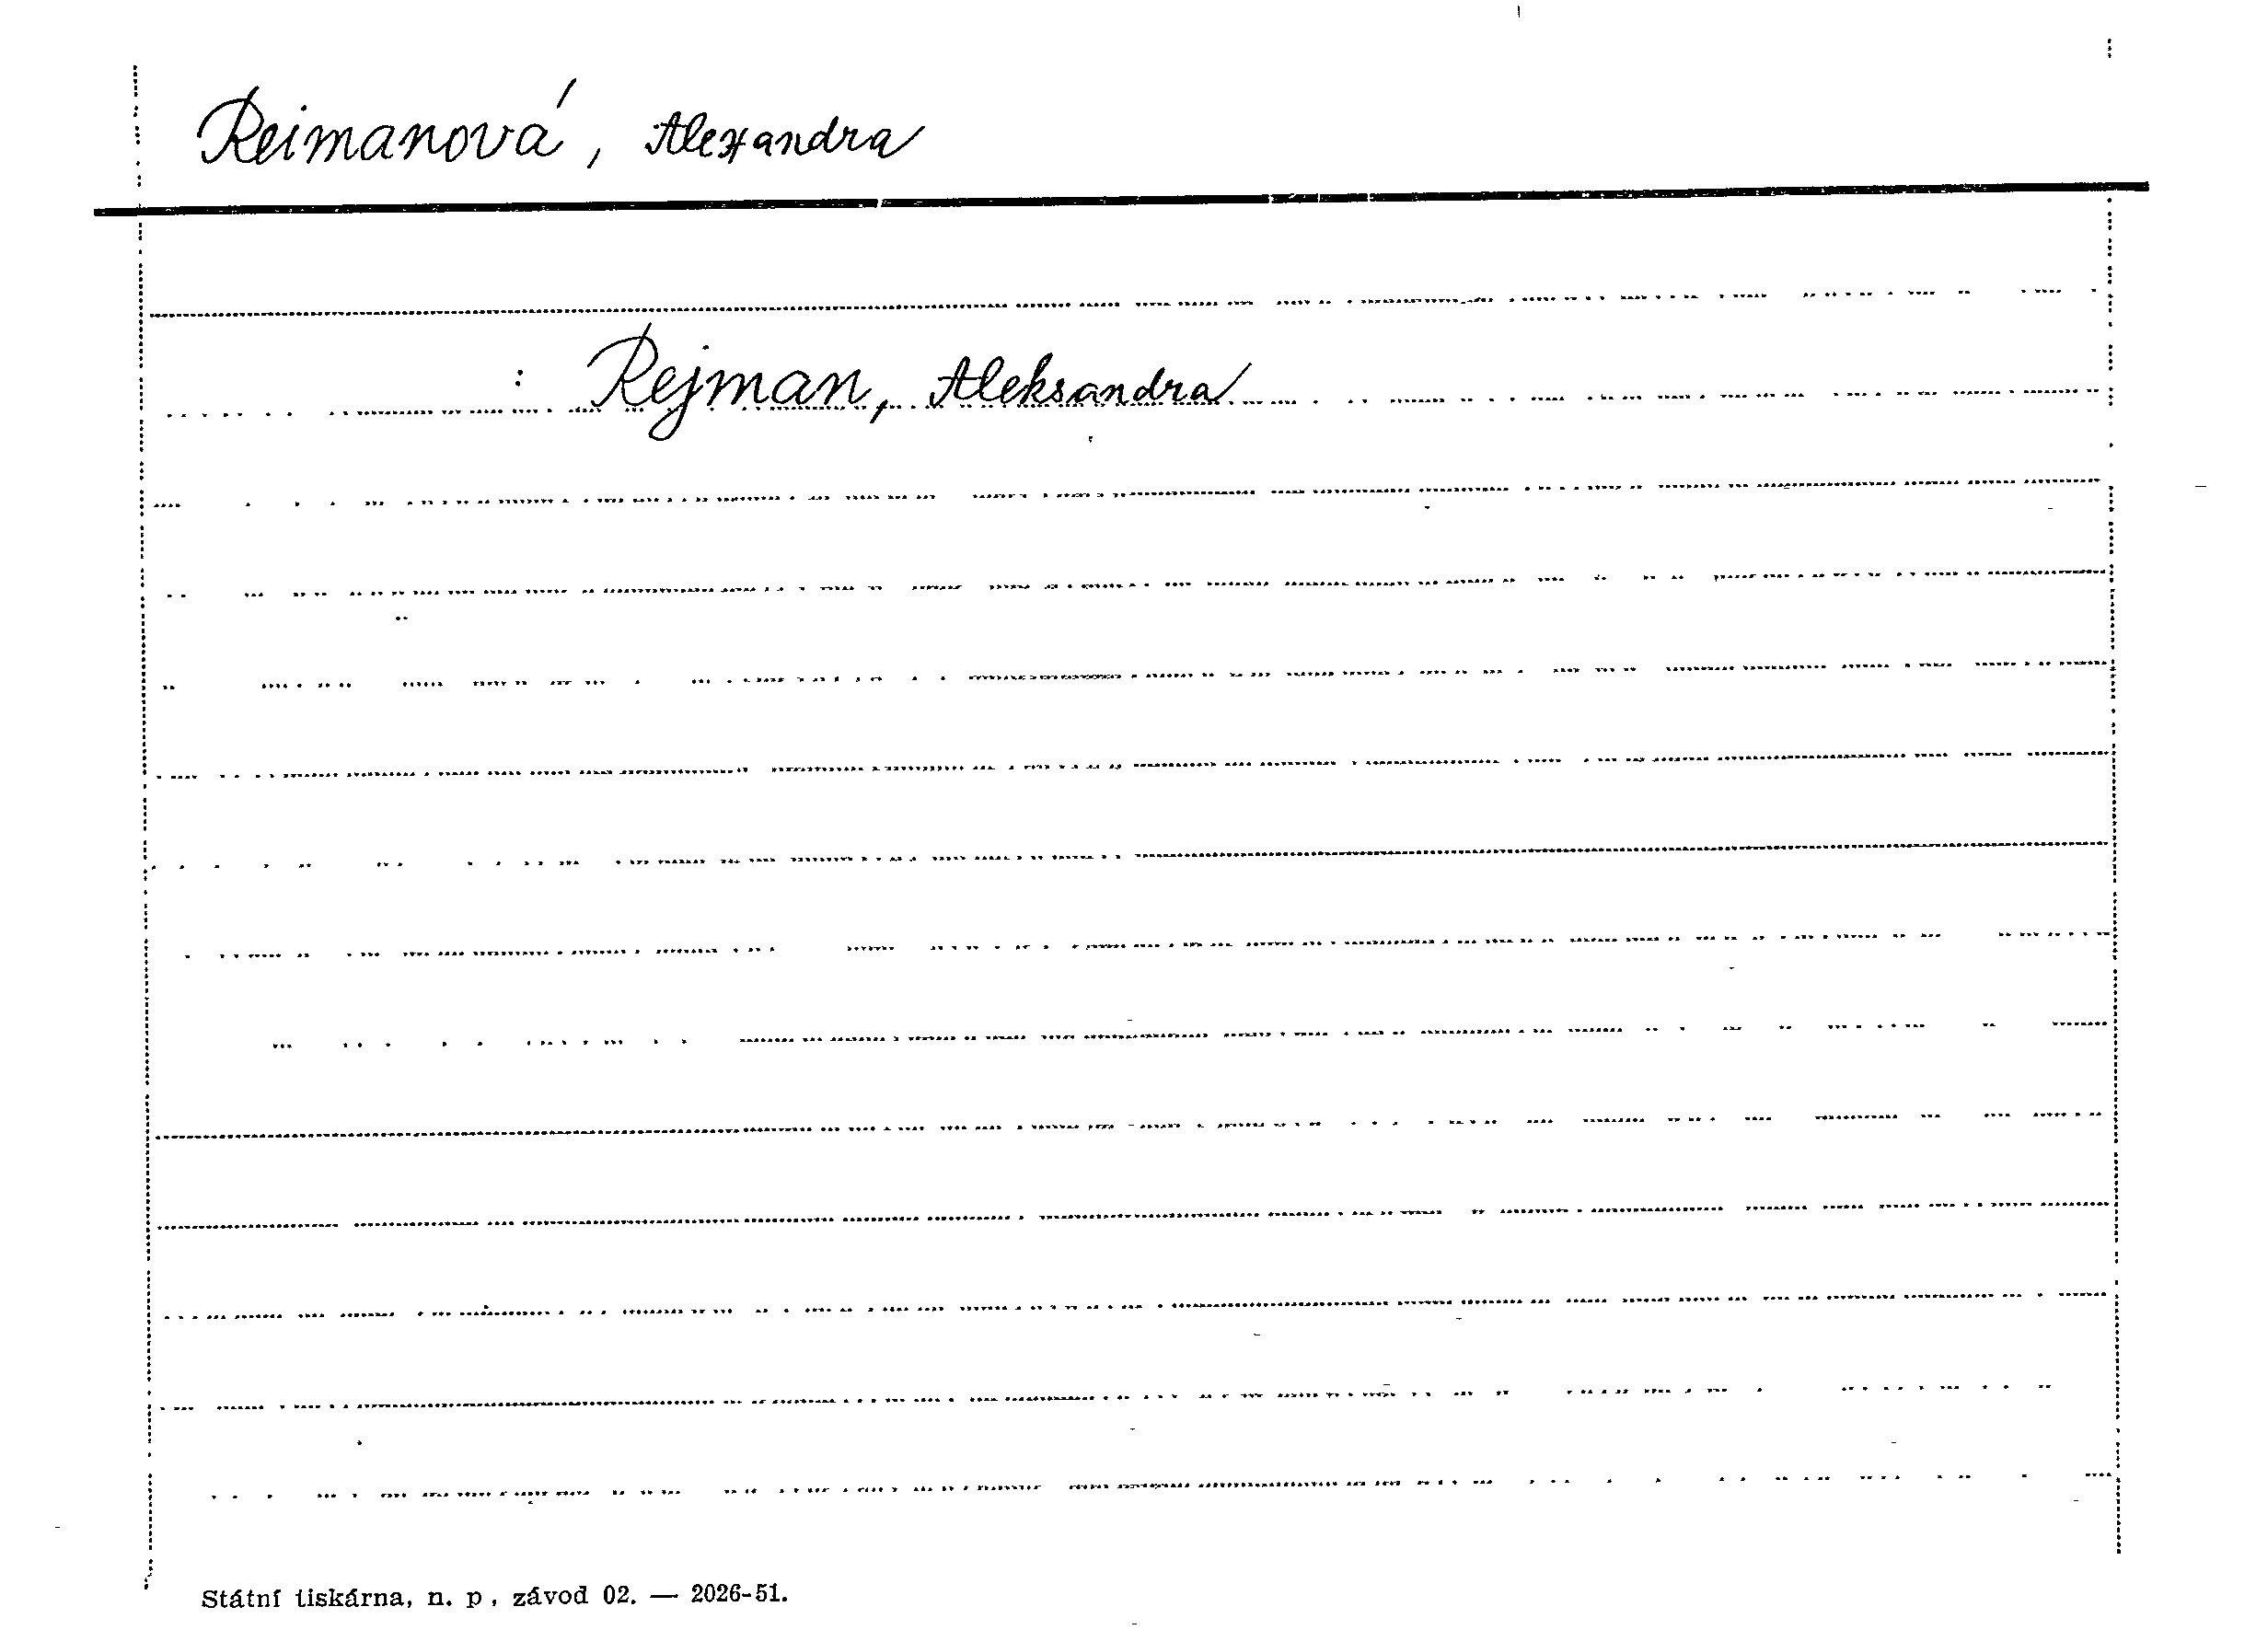 Reimanová, Alexandra
: Rejman, Aleksandra
Státní tiskárna, n. p., závod 02. — 2026-51.